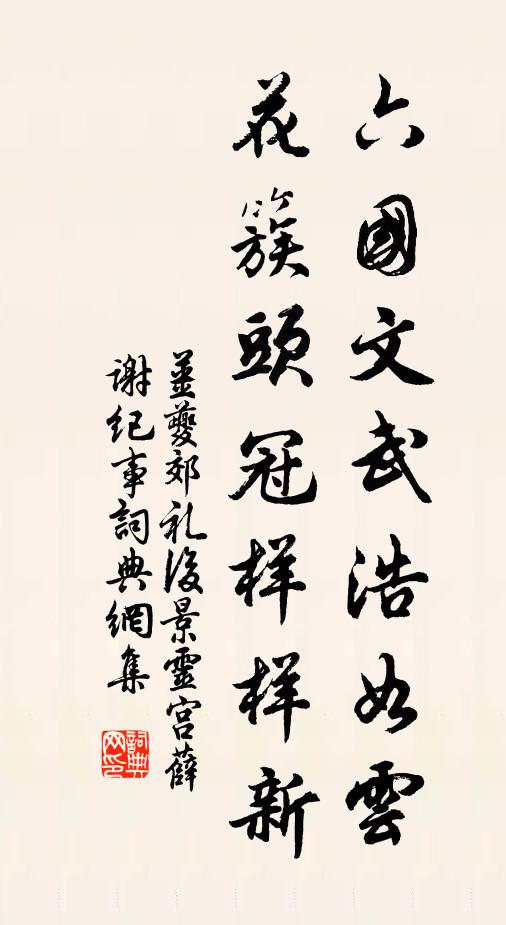 六國文武浩如雲
花簇頭冠样样新
姜夔郊礼後景靈宫薛
谢紀事詞典網集
詞典网印